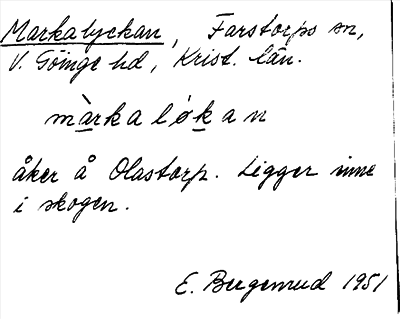 Markalyckan, Farstorps sn,
V. Göinge hd, Krist. län.
màrkaløkan
åker å Olastorp. Ligger inne
i skogen.
E. Bergenrud 1951